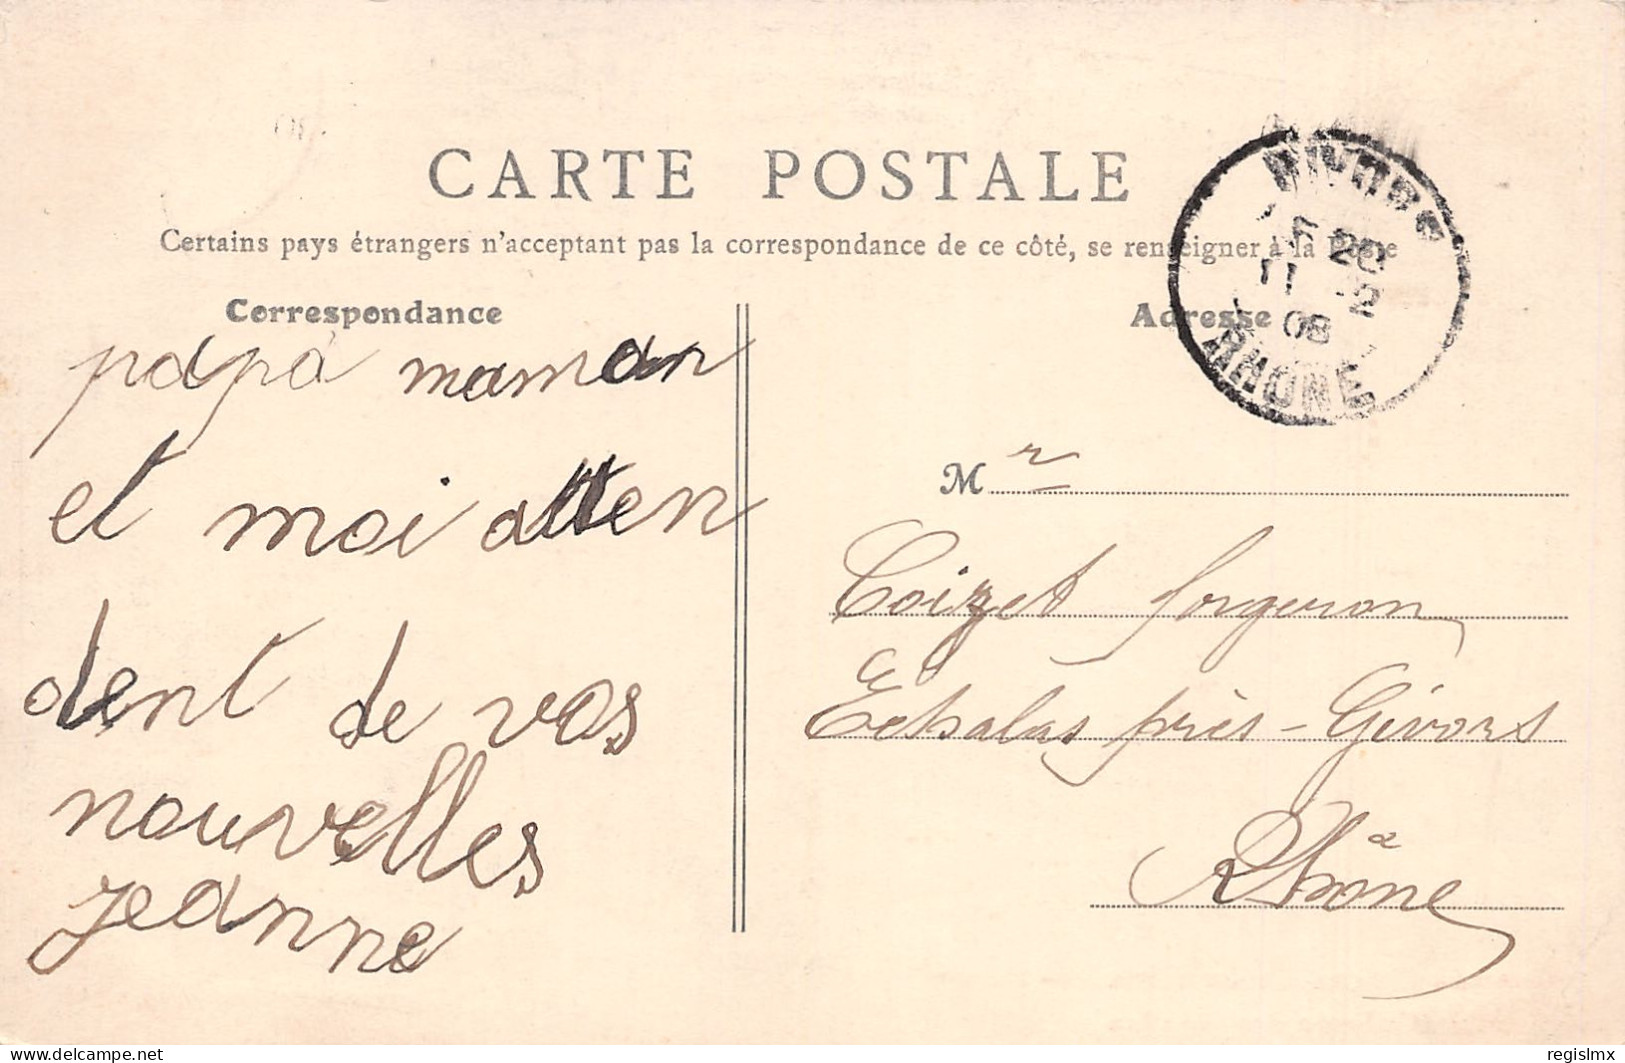 CARTE POSTALE
Certains pays étrangers n'acceptant pas la correspondance de ce côté, se renseigner à la Poste
Correspondance
papa maman
et moi atten
dent de vos
nouvelles
jeanne
Adresse
20
11 -2
08
RHONE
M r
Coizet forgeron
Echalas près - Givors
Rhône
delcampe.net
regislmx